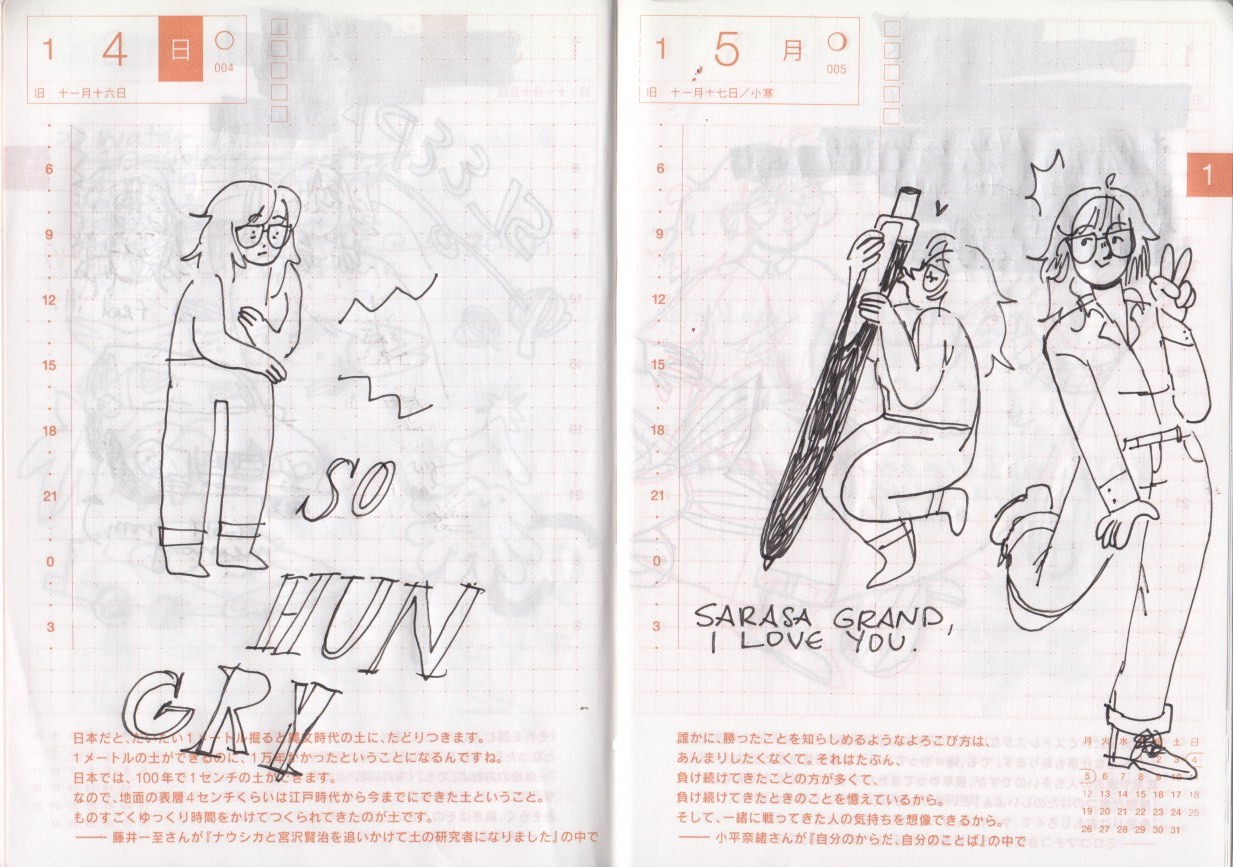 1 4 日
004
旧 十一月十六日
6
9
12
15
18
21
0
3
SO
HUN
GRY
日本だと、だいたい1メートル掘ると縄文時代の土に、たどりつきます。
1メートルの土ができるのに、1万年かかったということになるんですね。
日本では、100年で1センチの土ができます。
なので、地面の表層4センチくらいは江戸時代から今までにできた土ということ。
ものすごくゆっくり時間をかけてつくられてきたのが土です。
── 藤井一至さんが『ナウシカと宮沢賢治を追いかけて土の研究者になりました』の中で
1 5 月
005
旧 十一月十七日/小寒
1
6
9
12
15
18
21
0
3
SARASA GRAND,
I LOVE YOU.
誰かに、勝ったことを知らしめるようなよろこび方は、
あんまりしたくなくて。それはたぶん、
負け続けてきたことの方が多くて、
負け続けてきたときのことを憶えているから。
そして、一緒に戦ってきた人の気持ちを想像できるから。
── 小平奈緒さんが『自分のからだ、自分のことば』の中で
月 火 水 土 日
2 3 4
5 6 7 8 9 10
12 13 14 15 16 17 18
19 20 21 22 23 24 25
26 27 28 29 30 31